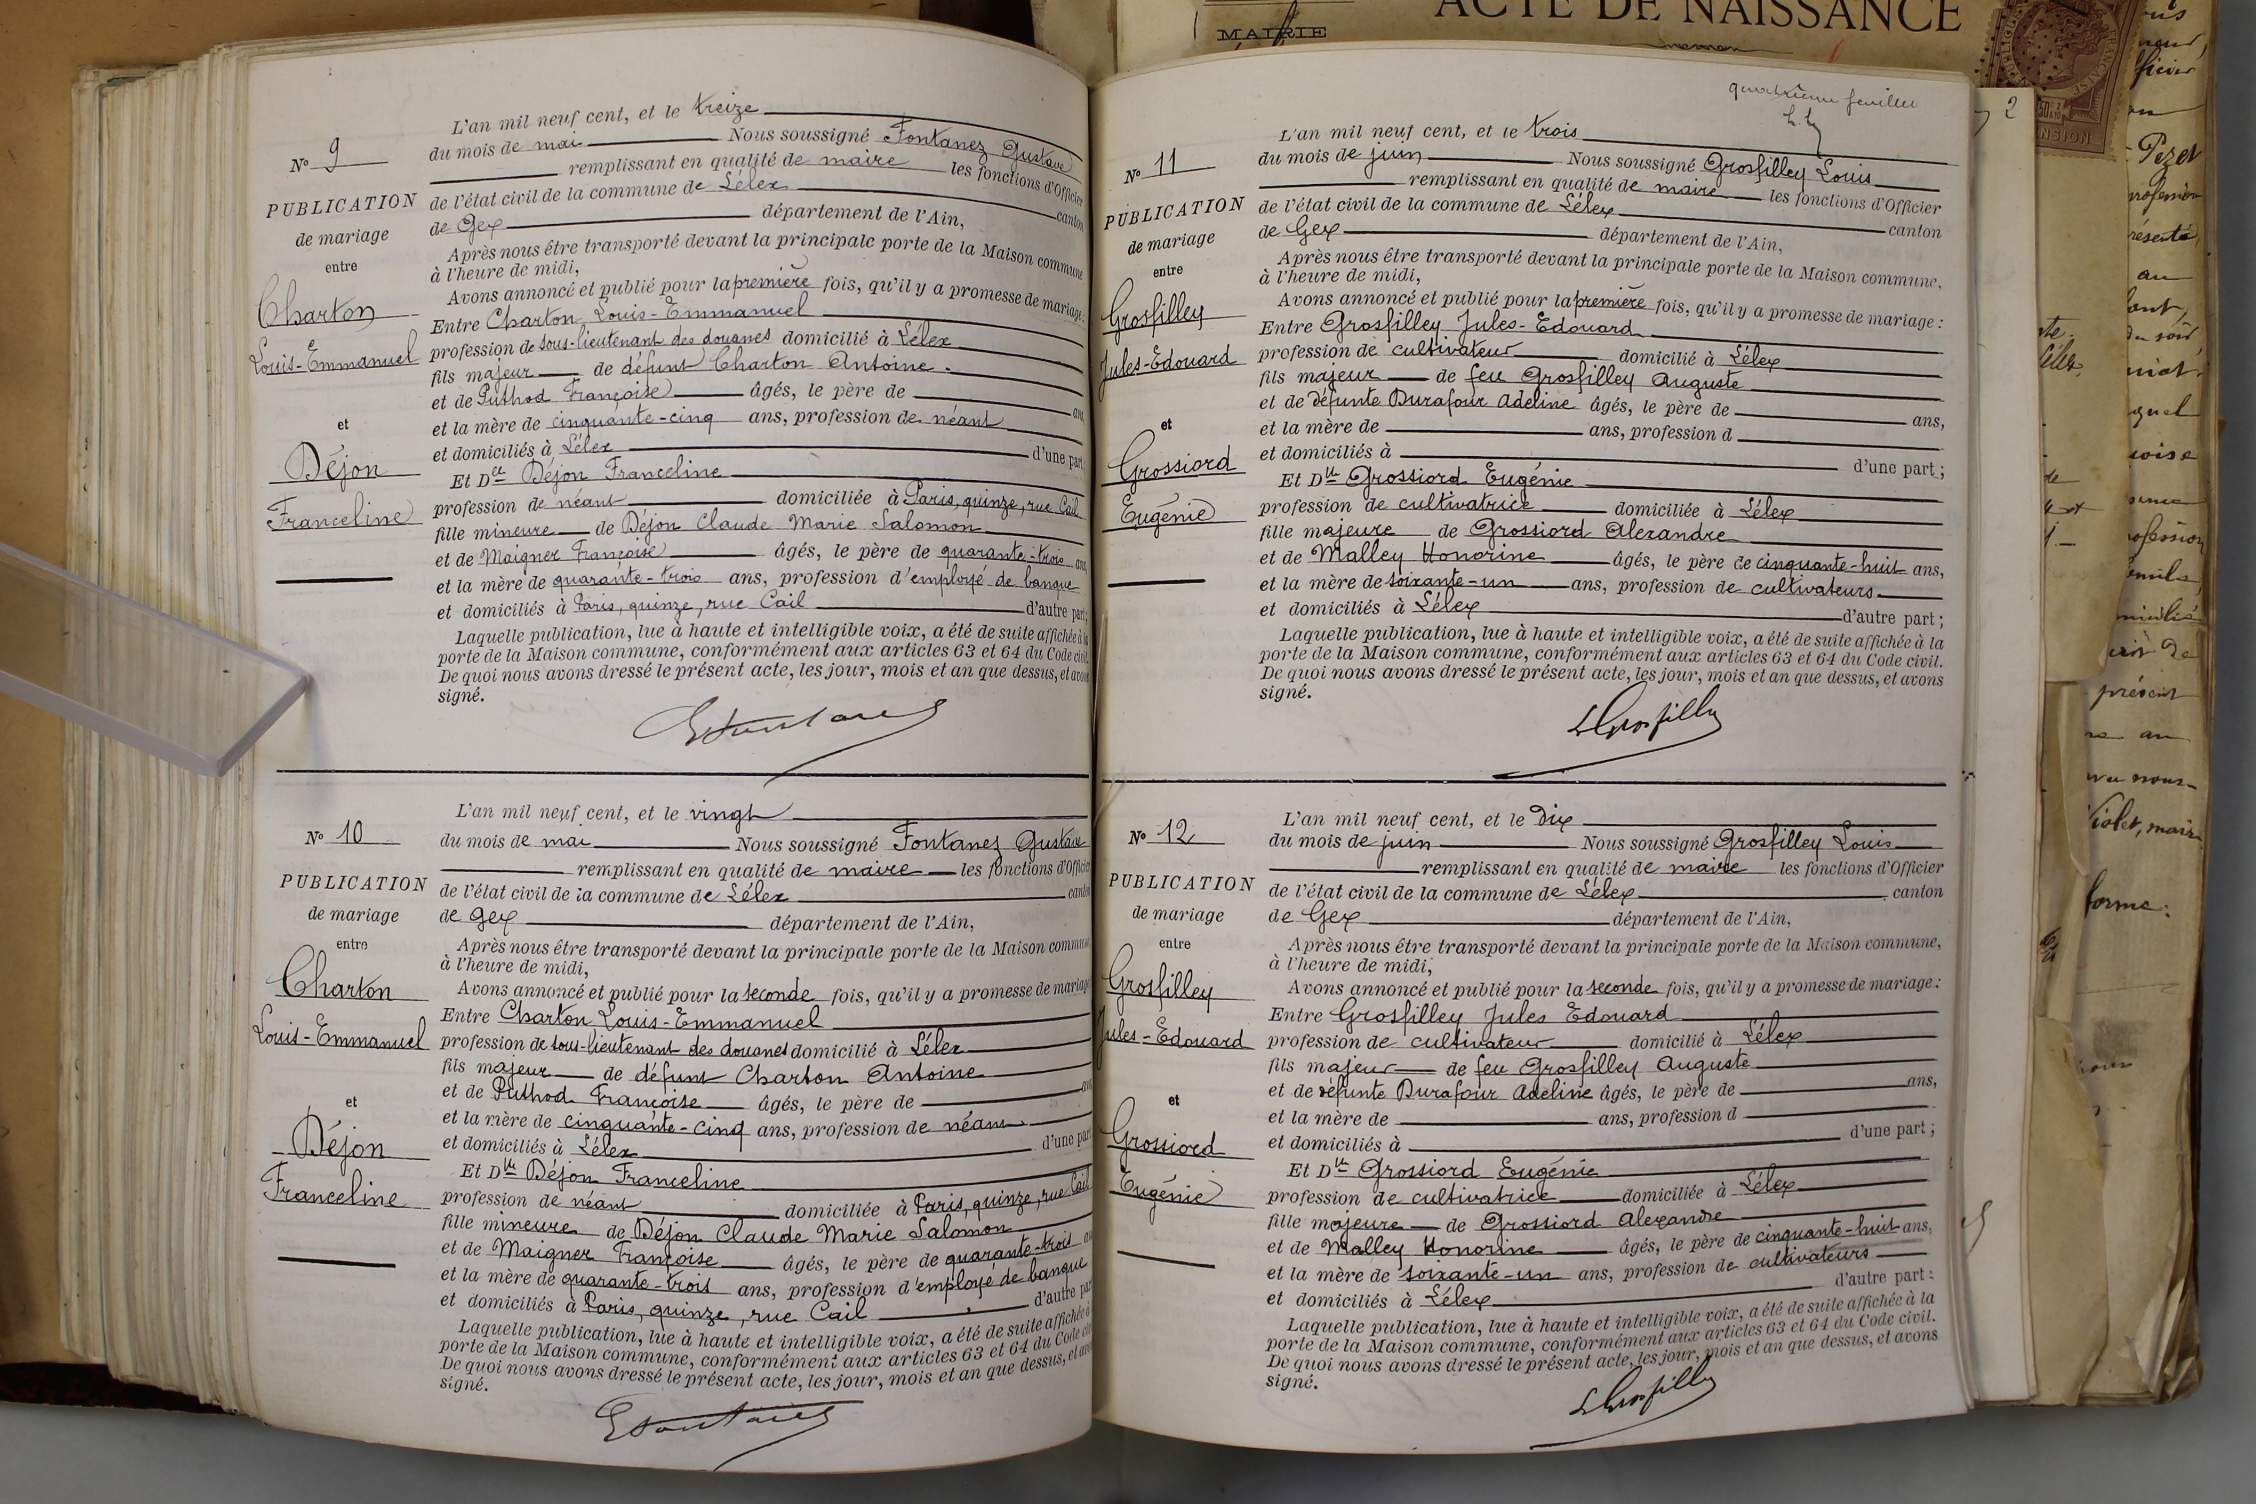 N° 9
PUBLICATION
de mariage
entre
Charton
Louis-Emmanuel
et
Déjon
Franceline
L'an mil neuf cent, et le treize
du mois de mai Nous soussigné Fontanez Gustave
remplissant en qualité de maire les fonctions d'Officier
de l'état civil de la commune de Lélex canton
de Gex département de l'Ain,
Après nous être transporté devant la principale porte de la Maison commune
à l'heure de midi,
Avons annoncé et publié pour la première fois, qu'il y a promesse de mariage:
Entre Charton Louis-Emmanuel
profession de sous-lieutenant des douanes domicilié à Lélex
fils majeur de défunt Charton Antoine
et de Puthod Françoise âgés, le père de ans
et la mère de cinquante-cinq ans, profession de néant
et domiciliés à Lélex d'une part;
Et Delle Déjon Franceline
profession de néant domiciliée à Paris, quinze, rue Cail
fille mineure de Déjon Claude Marie Salomon
et de Maigner Françoise âgés, le père de quarante-trois ans
et la mère de quarante-trois ans, profession d'employé de banque
et domiciliés à Paris, quinze, rue Cail d'autre part;
Laquelle publication, lue à haute et intelligible voix, a été de suite affichée à la
porte de la Maison commune, conformément aux articles 63 et 64 du Code civil.
De quoi nous avons dressé le présent acte, les jour, mois et an que dessus, et avons
signé.
N° 10
PUBLICATION
de mariage
entre
Charton
Louis-Emmanuel
et
Déjon
Franceline
L'an mil neuf cent, et le vingt
du mois de mai Nous soussigné Fontanez Gustave
remplissant en qualité de maire les fonctions d'Officier
de l'état civil de la commune de Lélex canton
de Gex département de l'Ain,
Après nous être transporté devant la principale porte de la Maison commune
à l'heure de midi,
Avons annoncé et publié pour la seconde fois, qu'il y a promesse de mariage
Entre Charton Louis-Emmanuel
profession de sous-lieutenant des douanes domicilié à Lélex
fils majeur de défunt Charton Antoine
et de Puthod Françoise âgés, le père de ans
et la mère de cinquante-cinq ans, profession de néant
et domiciliés à Lélex d'une part
Et Dlle Déjon Franceline
profession de néant domiciliée à Paris, quinze, rue Cail
fille mineure de Déjon Claude Marie Salomon
et de Maigner Françoise âgés, le père de quarante-trois
et la mère de quarante-trois ans, profession d'employé de banque
et domiciliés à Paris, quinze, rue Cail d'autre part
Laquelle publication, lue à haute et intelligible voix, a été de suite affichée à
porte de la Maison commune, conformément aux articles 63 et 64 du Code
De quoi nous avons dressé le présent acte, les jour, mois et an que dessus, et avons
signé.
quatrième feuillet
N° 11
PUBLICATION
de mariage
entre
Grosfilley
Jules-Edouard
et
Grossiord
Eugénie
L'an mil neuf cent, et le trois
du mois de juin Nous soussigné Grosfilley Louis
remplissant en qualité de maire les fonctions d'Officier
de l'état civil de la commune de Lélex canton
de Gex département de l'Ain,
Après nous être transporté devant la principale porte de la Maison commune,
à l'heure de midi,
Avons annoncé et publié pour la première fois, qu'il y a promesse de mariage:
Entre Grosfilley Jules-Edouard
profession de cultivateur domicilié à Lélex
fils majeur de feu Grosfilley Auguste
et de défunte Durafour Adeline âgés, le père de ans,
et la mère de ans, profession d
et domiciliés à d'une part;
Et Dlle Grossiord Eugénie
profession de cultivatrice domiciliée à Lélex
fille majeure de Grossiord Alexandre
et de Malley Honorine âgés, le père de cinquante-huit ans,
et la mère de soixante-un ans, profession de cultivateurs
et domiciliés à Lélex d'autre part;
Laquelle publication, lue à haute et intelligible voix, a été de suite affichée à la
porte de la Maison commune, conformément aux articles 63 et 64 du Code civil.
De quoi nous avons dressé le présent acte, les jour, mois et an que dessus, et avons
signé.
LGrosfilley
N° 12
PUBLICATION
de mariage
entre
Grosfilley
Jules-Edouard
et
Grossiord
Eugénie
L'an mil neuf cent, et le dix
du mois de juin Nous soussigné Grosfilley Louis
remplissant en qualité de maire les fonctions d'Officier
de l'état civil de la commune de Lélex canton
de Gex département de l'Ain,
Après nous être transporté devant la principale porte de la Maison commune,
à l'heure de midi,
Avons annoncé et publié pour la seconde fois, qu'il y a promesse de mariage:
Entre Grosfilley Jules Edouard
profession de cultivateur domicilié à Lélex
fils majeur de feu Grosfilley Auguste
et de défunte Durafour Adeline âgés, le père de ans,
et la mère de ans, profession d
et domiciliés à d'une part;
Et Dlle Grossiord Eugénie
profession de cultivatrice domiciliée à Lélex
fille majeure de Grossiord Alexandre
et de Malley Honorine âgés, le père de cinquante-huit ans,
et la mère de soixante-un ans, profession de cultivateurs
et domiciliés à Lélex d'autre part:
Laquelle publication, lue à haute et intelligible voix, a été de suite affichée à la
porte de la Maison commune, conformément aux articles 63 et 64 du Code civil.
De quoi nous avons dressé le présent acte, les jour, mois et an que dessus, et avons
signé.
LGrosfilley
MAIRIE
ACTE DE NAISSANCE
2
Pezet
présent
Violet, maire
forme: